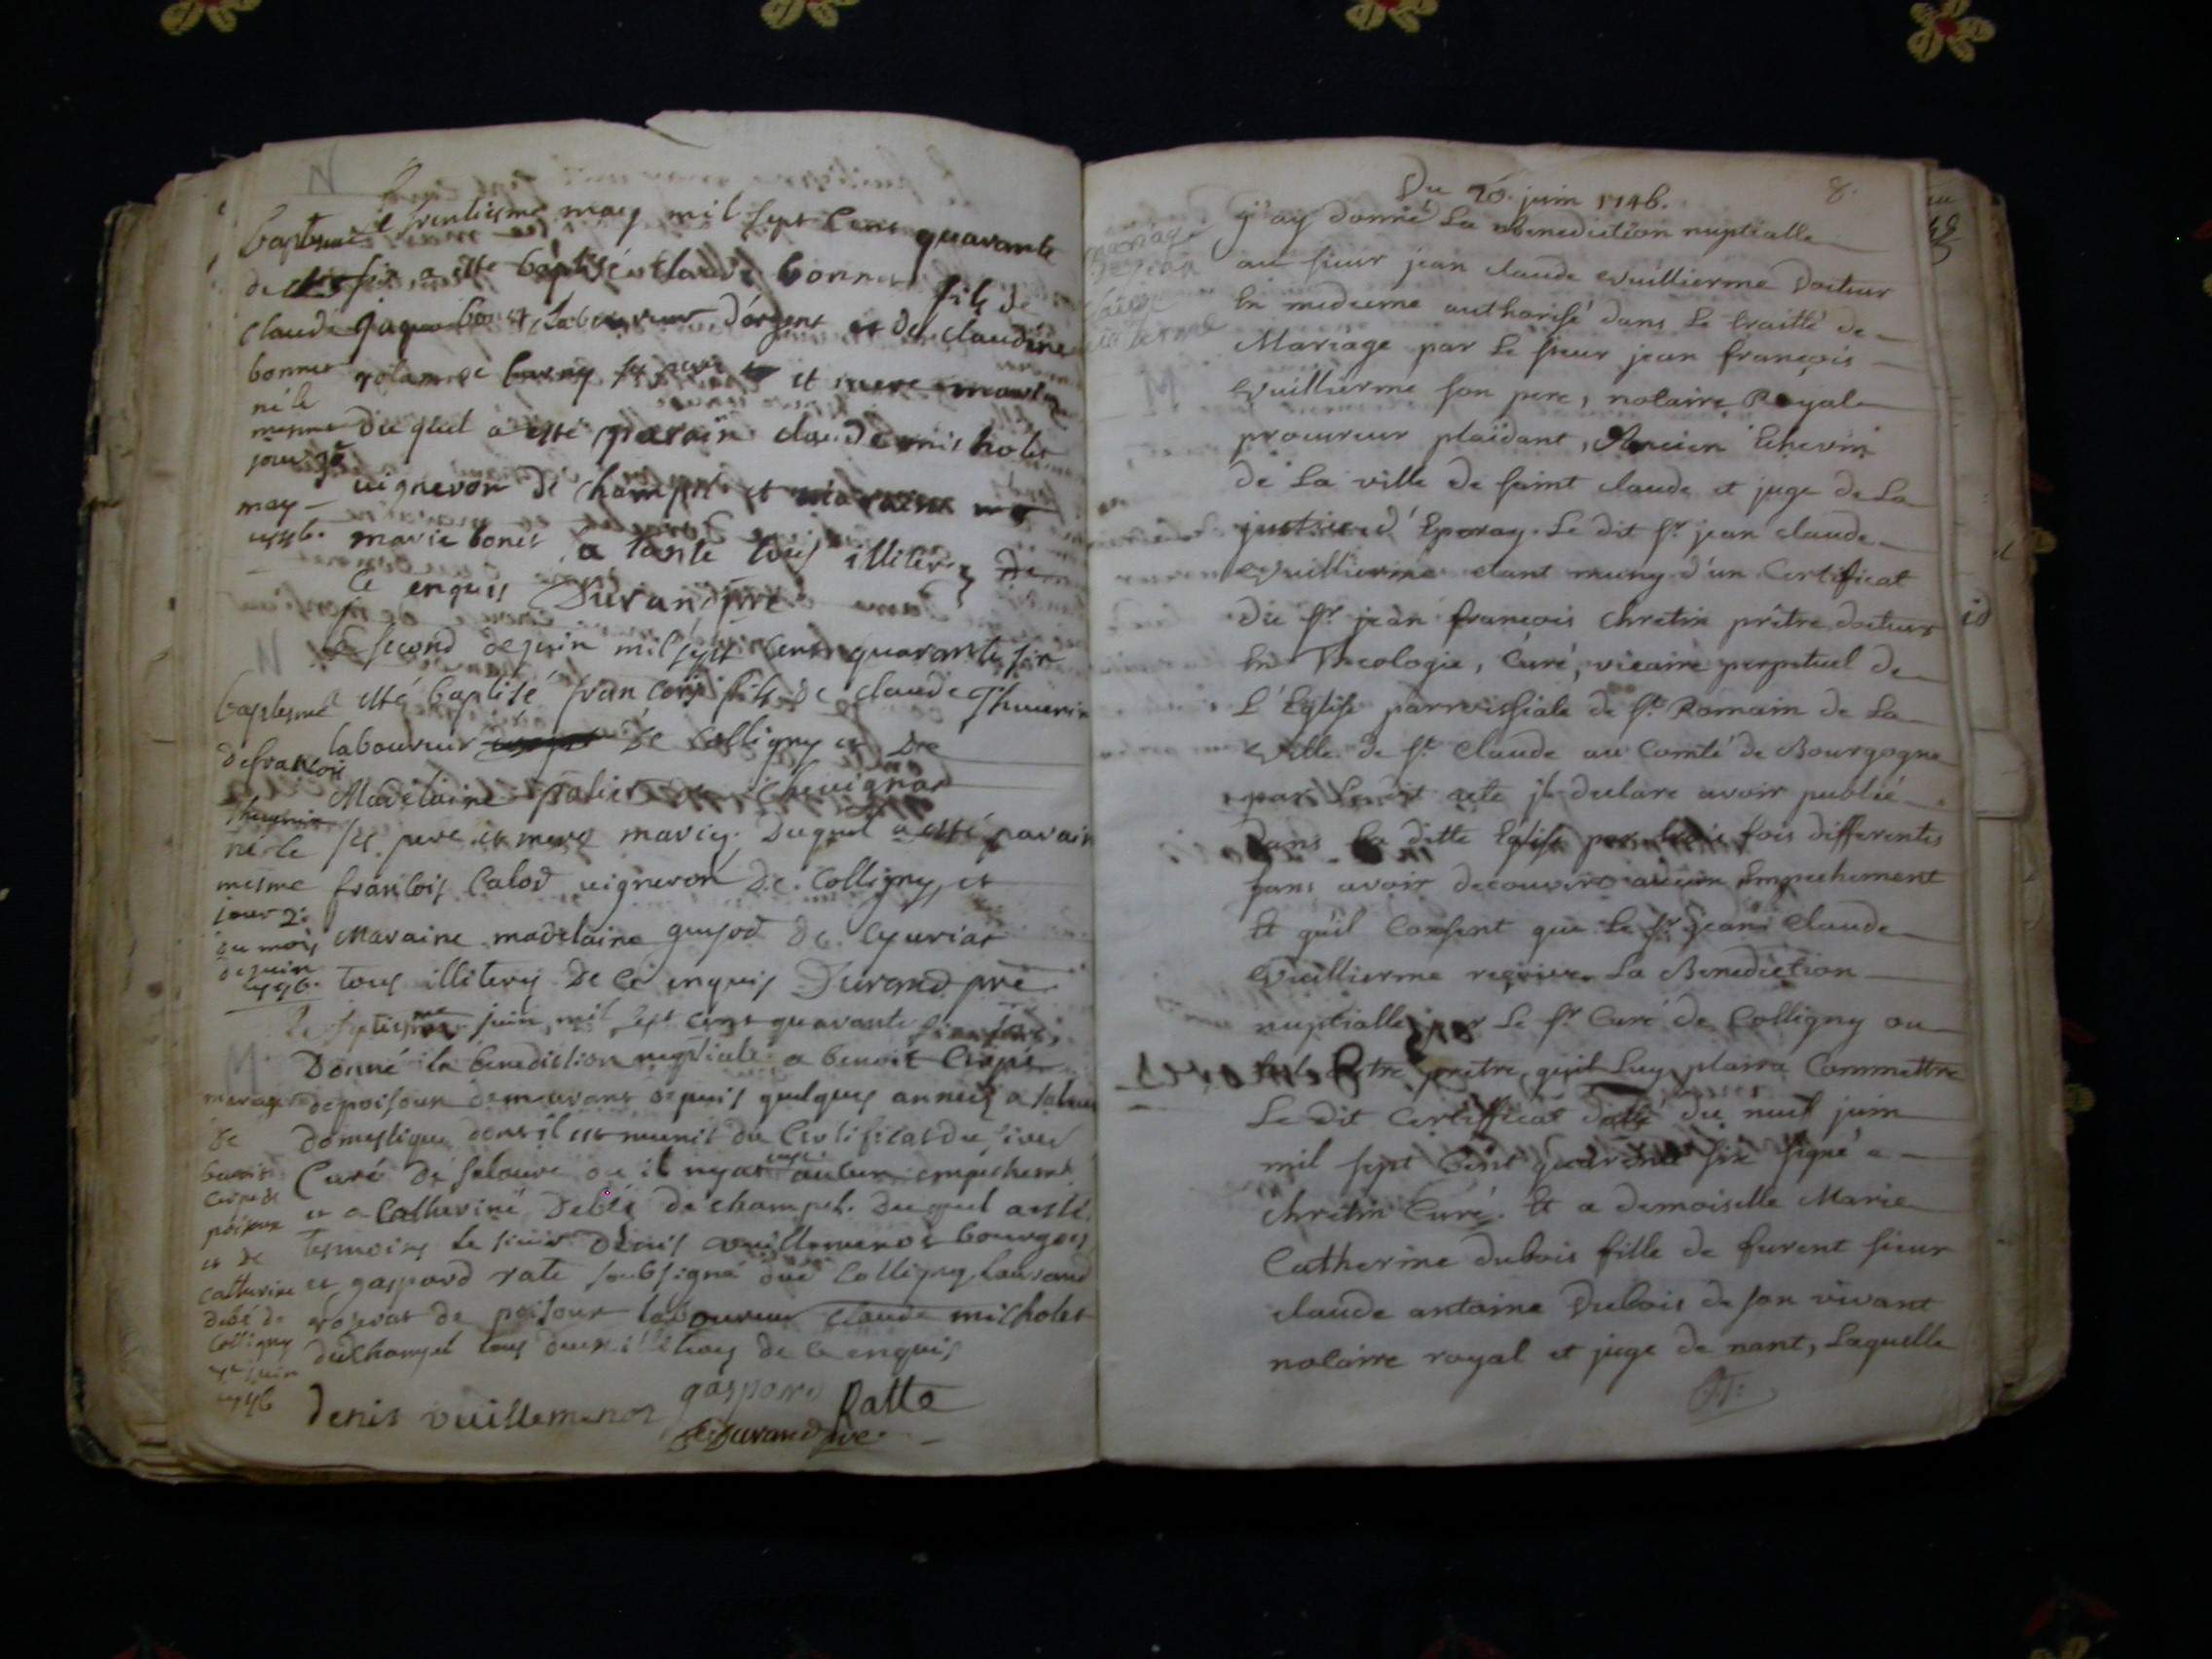 N
Le trentiesme may mil sept cens quarante
six a esté baptisé claude bonnet fils de
laboureur d'argent et de claudine
et mere
Duquel a esté parain claude micholet
vigneron de champel et maraine
marie bonet sa tante tous illiterez de
ce enquis Durand pre
baptesme
de
claude
bonnet
né le
mesme
jour 30
may
1746.
Le second de juin mil sept cens quarante six
a esté baptisé francois fils de claude Thevenin
laboureur de Colligny et de
Madelaine de chevignat
ses pere et mere mariez. Duquel a esté parain
francois Calod vigneron de Colligny, et
Maraine madelaine guyod de Cyuriat
tous illiterez De ce enquis Durand pre
N
baptesme
de francois
thevenin
né le
mesme
jour 2e
du mois
de juin
1746.
Le septiesme juin mil sept cens quarante six
Donné la benediction nuptiale a benoit
de poisoux demeurant depuis quelques années a
Domestique dont il est munis du Certificat du sieur
Curé de où il n'y a eut aucun empechemt
et a Catherine Debés de champel. Duquel a esté
tesmoins le sieur Denis vuillemenot bourgeois
et gaspard rate soubsigné dud Colligny
de poisoux laboureur claude micholet
du champel tous deux illiterez de ce enquis
denis vuillemenot gaspard Ratte
Durand pre
M
mariage
de
benoist
de
poisoux
et de
catherine
debés de
Colligny
7e juin
1746
Du 20. juin 1746.
8.
J'ay donné La Benediction nuptialle
au sieur jean claude Vuillierme Docteur
En medecine autharisé dans Le traitté de
Mariage par Le sieur jean françois
Vuillierme son pere, notaire Royal
procureur plaidant, Ancien Echevin
de La ville de saint claude et juge de La
justice d'Eporay. Le dit sr jean claude
Vuillierme etant muny d'un Certificat
du sr jean françois chretin prêtre docteur
En Theologie, Curé, vicaire perpetuel de
L'Eglise parroissiale de st Romain de La
Ville de st Claude au Comté de Bourgogne
par Ledit acte il declare avoir publié
Dans La ditte Eglise par trois fois differentes
sans avoir decouvert aucun Empechement
Et qu'il Consent que Le sr jean Claude
Vuillierme reçoive La Benediction
nuptialle par Le sr Curé de Colligny ou
tel autre prêtre qu'il Luy plaira Commettre
Le dit Certifficat datté du neuf juin
mil sept Cent quarante six signé
Chretin Curé. Et a demoiselle Marie
Catherine dubois fille de furent sieur
claude antoine Dubois de son vivant
notaire royal et juge de nant, Laquelle
mariage
de jean
claude
vuillerme
M